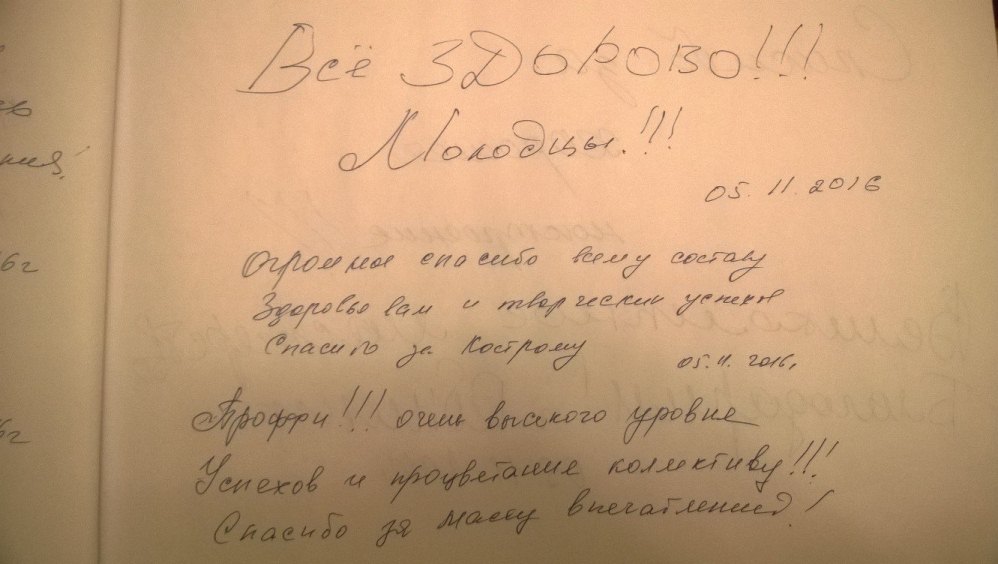 Всё ЗДОРОВО!!!
Молодцы!!!
05.11.2016
Огромное спасибо всему составу
Здоровье вам и творческих успехов
Спасибо за Кострому
05.11.2016,
Проффи!!! очень высокого уровня
Успехов и процветание коллективу!!!
Спасибо за массу впечатлений!
6г
6г